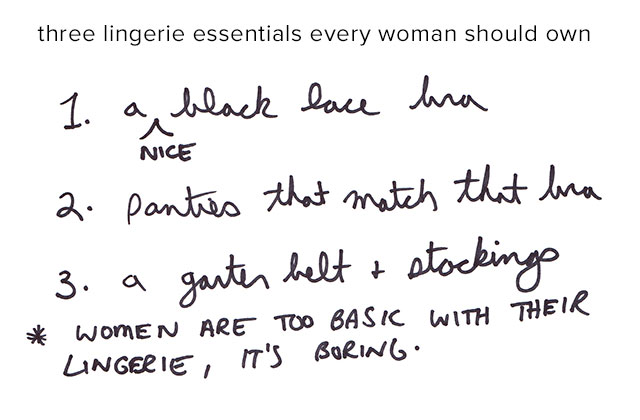 three lingerie essentials every woman should own
1. a ^ black lace bra
NICE
2. panties that match that bra
3. a garter belt + stockings
* WOMEN ARE TOO BASIC WITH THEIR
LINGERIE, IT'S BORING.